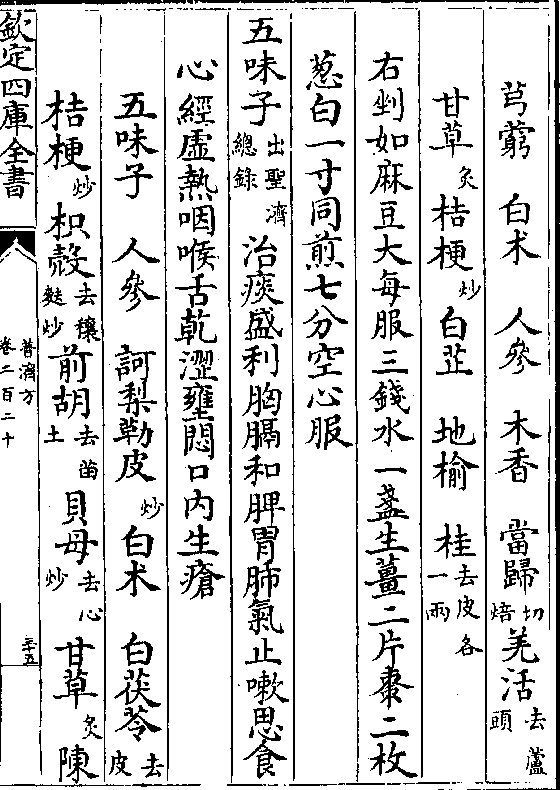 芎藭 白术 人參 木香 當歸切焙 羌活去蘆頭
甘草炙 桔梗炒 白芷 地榆 桂去皮各一兩
右剉如麻豆大每服三錢水一盞生薑二片棗二枚
葱白一寸同煎七分空心服
五味子出聖濟總錄 治痰盛利胸膈和脾胃肺氣止嗽思食
心經虛熱咽喉舌乾澀壅悶口内生瘡
五味子 人參 訶梨勒皮炒 白术 白茯苓去皮
桔梗炒 枳殼去穰麩炒 前胡去苗土 貝母去心炒 甘草炙 陳
欽定四庫全書
普濟方
卷二百二十
三十五